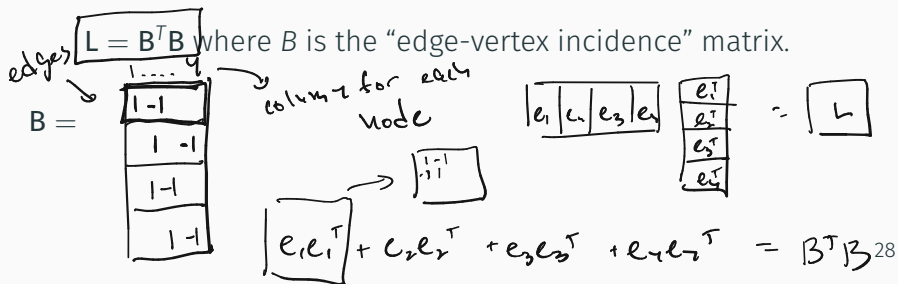 L = BᵀB where B is the "edge-vertex incidence" matrix.
edges
1 .... 4
column for each
node
B =
1 -1
1 -1
1 -1
1 -1
e₁ e₂ e₃ e₄
e₁ᵀ
e₂ᵀ
e₃ᵀ
e₄ᵀ
= L
1 -1
-1 1
e₁e₁ᵀ + e₂e₂ᵀ + e₃e₃ᵀ + e₄e₄ᵀ = BᵀB
28